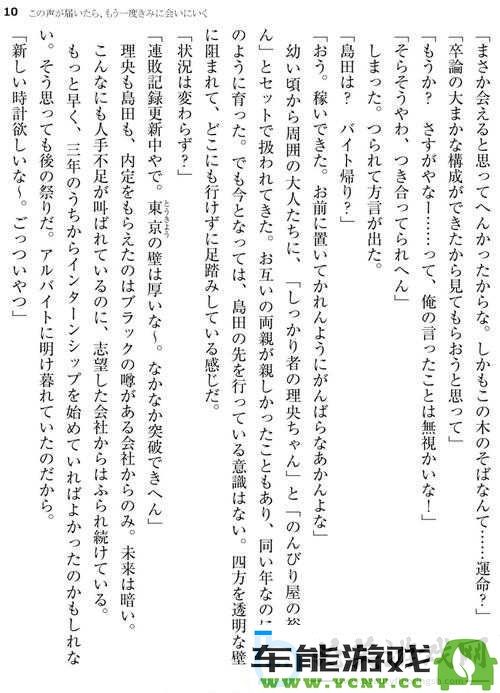 10 この声が届いたら、もう一度きみに会いにいく
「まさか会えると思ってへんかったからな。しかもこの木のそばなんて……運命？」
「卒論の大まかな構成ができたから見てもらおうと思って」
「もうか？　さすがやなー……って、俺の言ったことは無視かいな！」
「そらそうやわ、つき合ってられへん」
しまった。つられて方言が出た。
「島田は？　バイト帰り？」
「おう。稼いできた。お前に置いてかれんようにがんばらなあかんよな」
幼い頃から周囲の大人たちに、「しっかり者の理央ちゃん」と「のんびり屋の裕
ん」とセットで扱われてきた。お互いの両親が親しかったこともあり、同い年なのに
のように育った。でも今となっては、島田の先を行っている意識はない。四方を透明な壁
に阻まれて、どこにも行けずに足踏みしている感じだ。
「状況は変わらず？」
「連敗記録更新中やで。東京の壁は厚いな〜。なかなか突破できへん」
とうきょう
理央も島田も、内定をもらえたのはブラックの噂がある会社からのみ。未来は暗い。
こんなにも人手不足が叫ばれているのに、志望した会社からはふられ続けている。
もっと早く、三年のうちからインターンシップを始めていればよかったのかもしれな
い。そう思っても後の祭りだ。アルバイトに明け暮れていたのだから。
「新しい時計欲しいな〜。ごっついやつ」
车能游戏
WWW.YCNY.CC